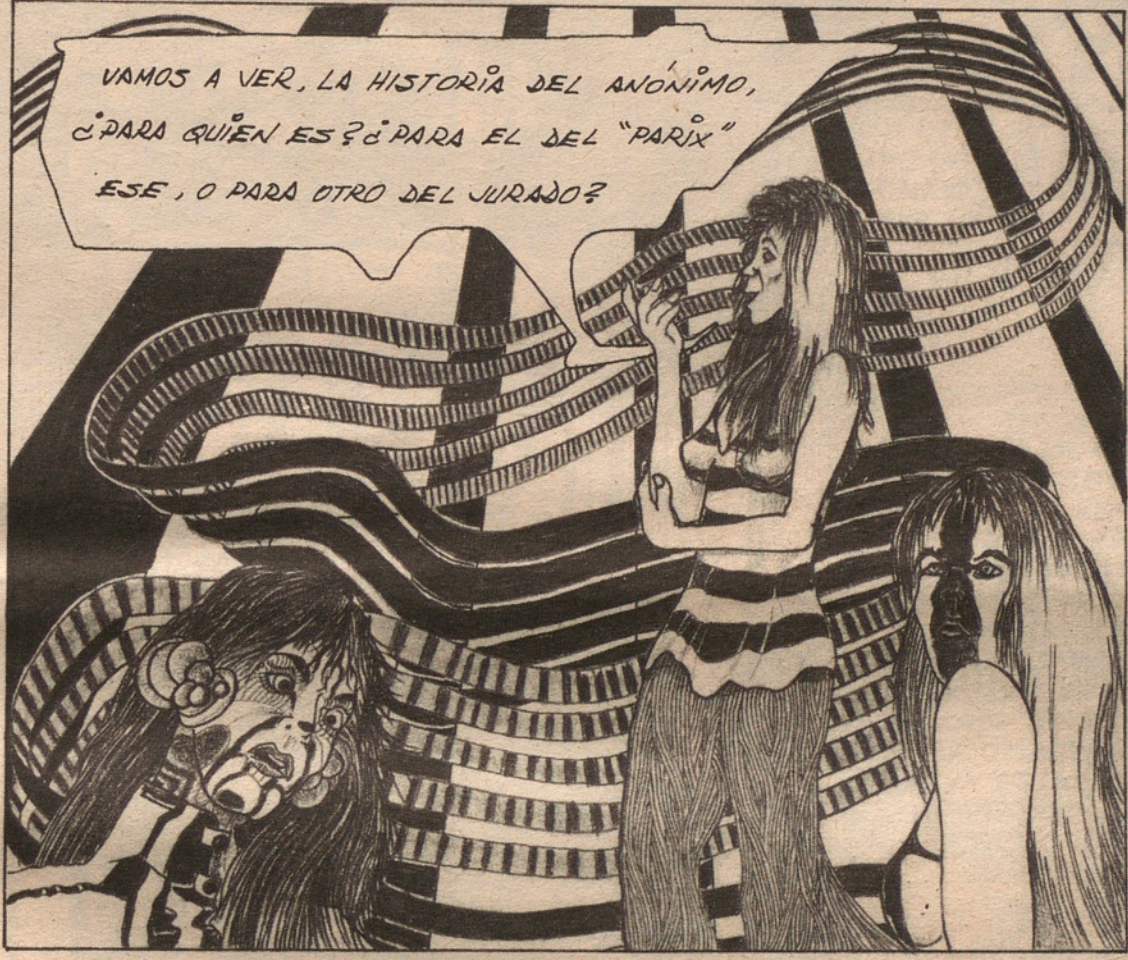 VAMOS A VER, LA HISTORIA DEL ANÓNIMO,
¿PARA QUIEN ES? ¿PARA EL DEL "PARIX"
ESE, O PARA OTRO DEL JURADO?